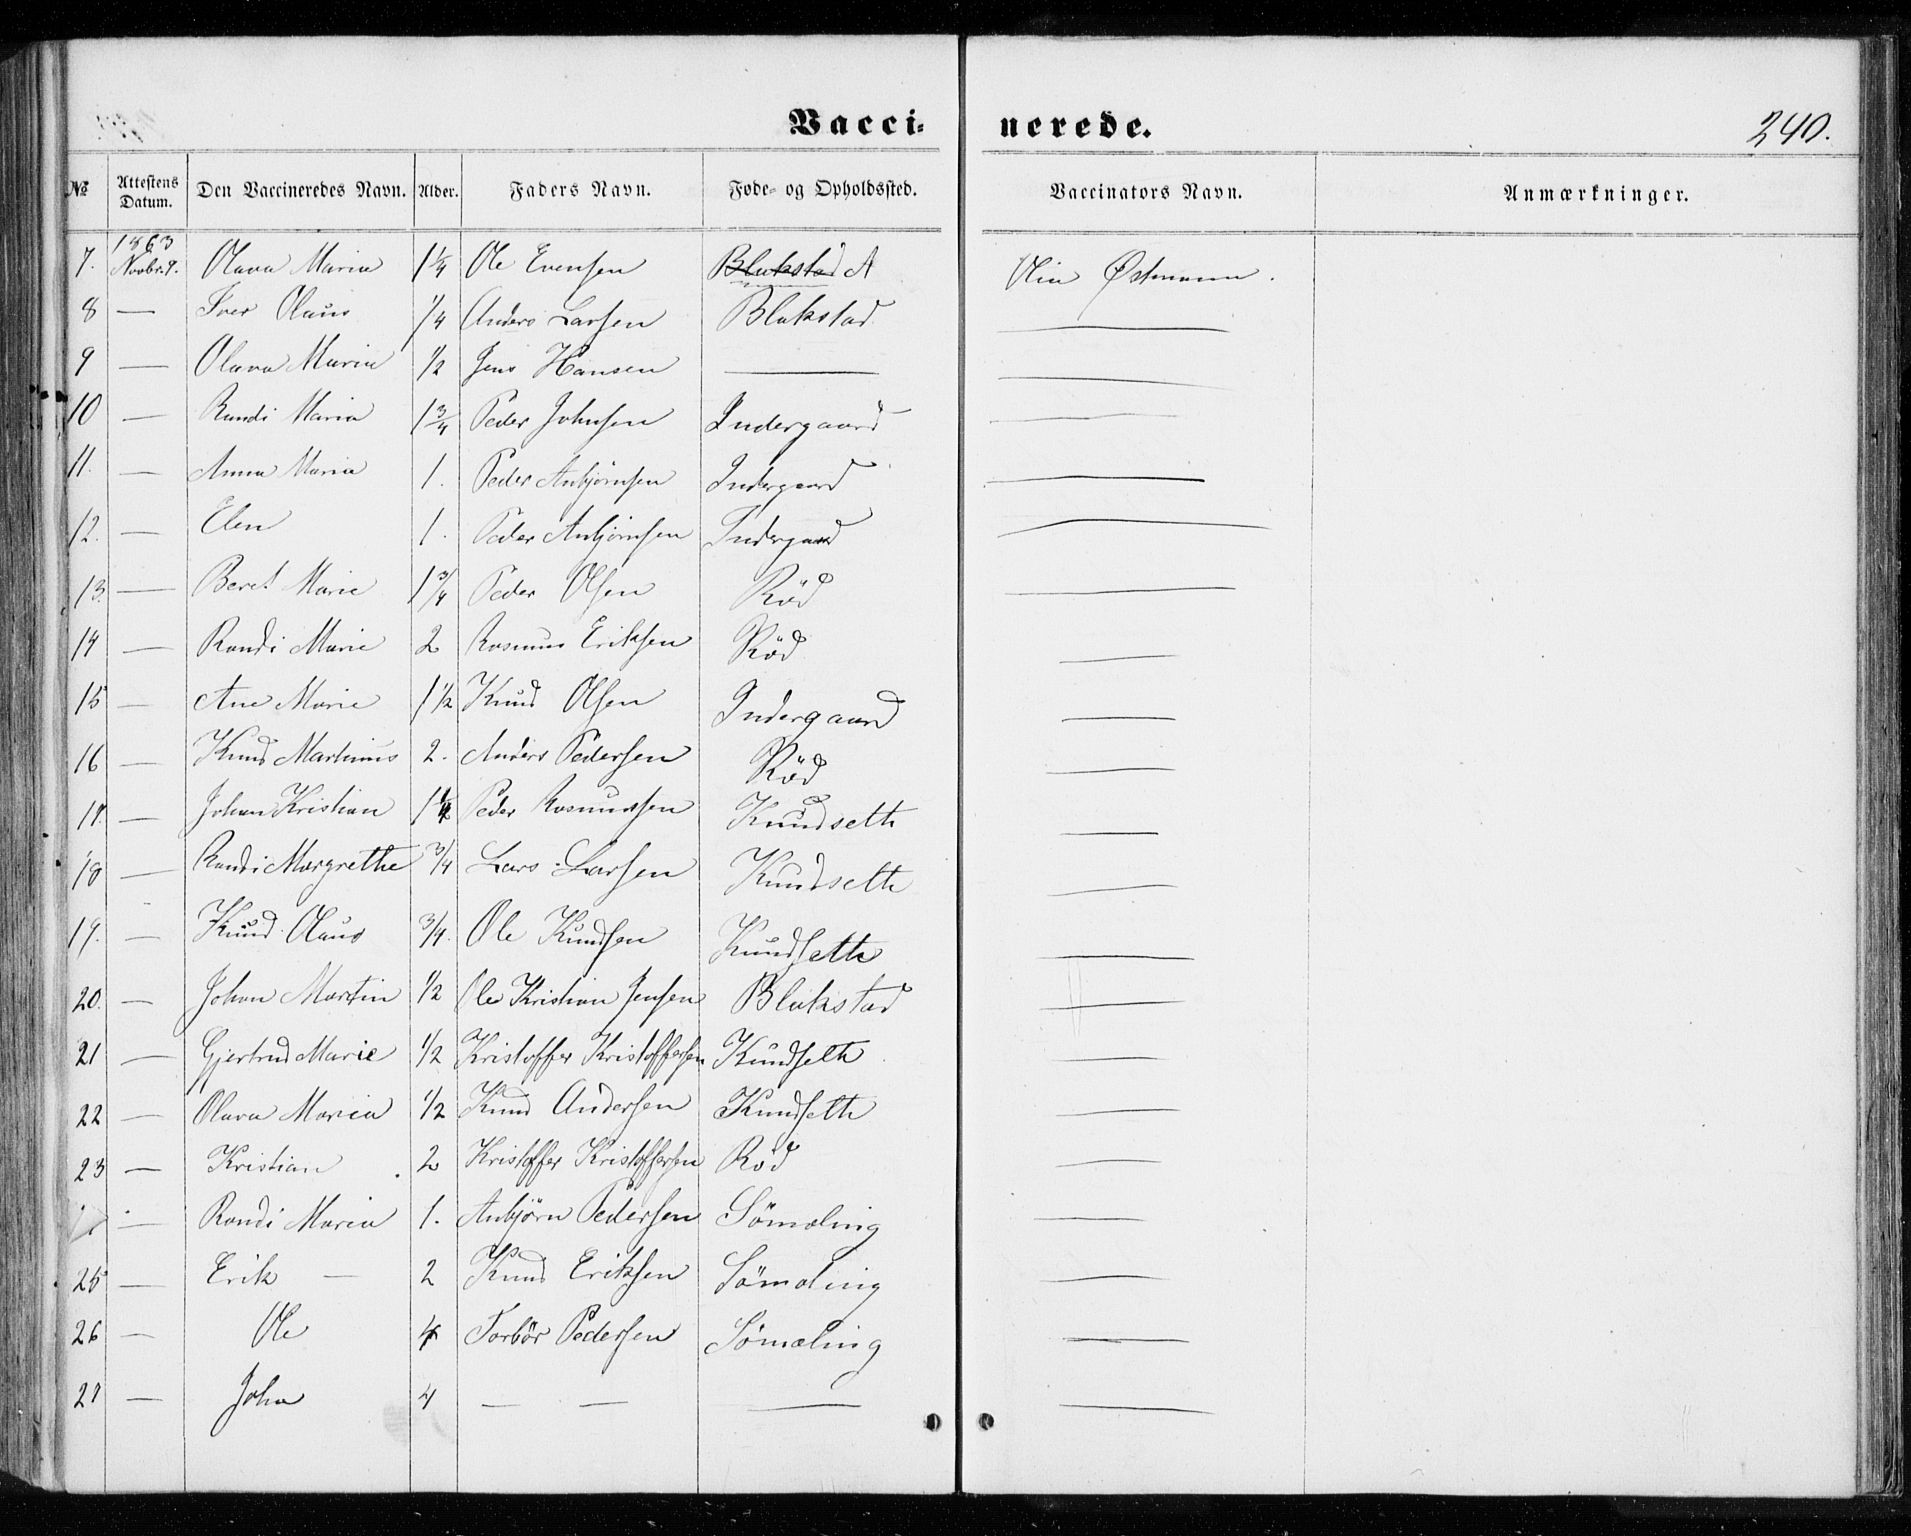 Vacci- nerede. 240.
№ Attestens Datum. Den Vaccineredes Navn. Alder. Faders Navn. Føde- og Opholdssted. Vaccinators Navn. Anmærkninger.
1863
7. Novbr. 9. Olava Maria 1 1/4 Ole Evensen Blakstad A Østmann.
8 — Iver Olaus 1/4 Anders Larsen Blakstad —
9 — Olava Maria 1/2 Jens Hansen — —
10 — Randi Maria 1 3/4 Peder Johnsen Indergaard —
11. — Anna Maria 1. Peder Anbjørnsen Indergaard —
12. — Elen 1. Peder Anbjørnsen Indergaard —
13. — Beret Marie 1 3/4 Peder Olsen Röd —
14 — Randi Marie 2 Rasmus Eriksen Röd —
15 — Ane Marie 1 1/2 Knud Olsen Indergaard —
16 — Knud Martinus 2. Anders Pedersen Röd —
17. — Johan Kristian 1 Peder Rasmussen Knudseth —
18 — Randi Margrethe 3/4 Lars Larsen Knudseth —
19. — Knud Olaus 3/4. Ole Knudsen Knudseth —
20. — Johan Martin 1/2 Ole Kristian Jensen Blakstad —
21 — Gjertrud Marie 1/2 Kristoffer Kristoffersen Knudseth —
22 — Olava Maria 1/2 Knud Andersen Knudseth —
23 — Kristian 2 Kristoffer Kristoffersen Röd —
— Randi Maria 1. Anbjørn Pedersen Sömæling —
25 — Erik — 2 Knud Eriksen Sömæling —
26 — Ole 4 Torbör Pedersen Sömæling —
27 — John 4 — — — —